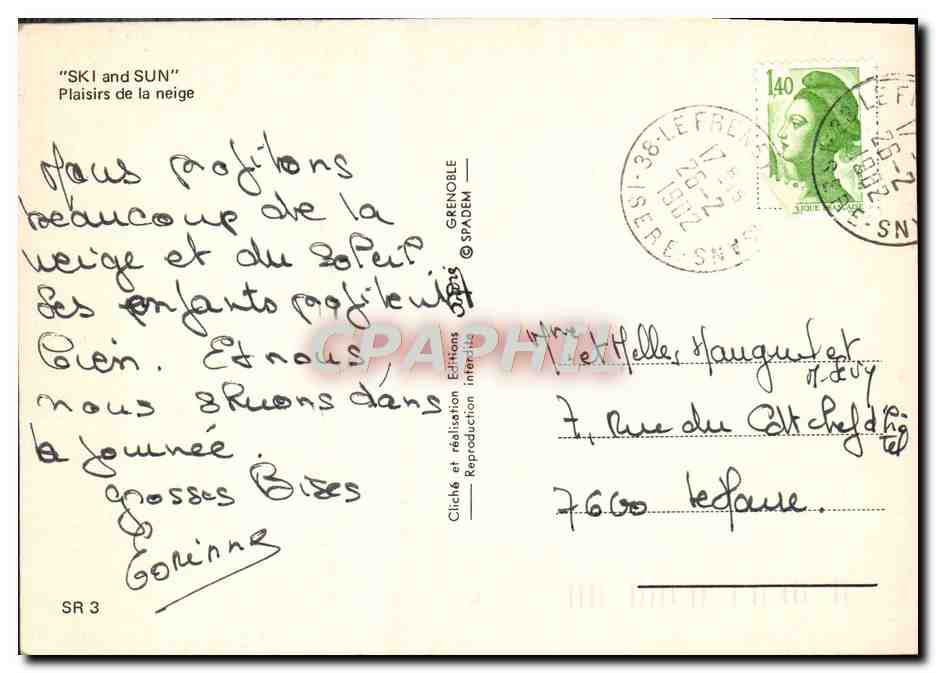 "SKI and SUN"
Plaisirs de la neige
Nous profitons
beaucoup de la
neige et du Soleil
Les enfants profitent
bien. Et nous,
nous skuons dans
la journée.
grosses Bises
Corinne
SR 3
Cliché et réalisation Editions André GRENOBLE
Reproduction interdite © SPADEM
CPAPHIL
1,40
38-LE FRENEY
17
26-2
1982
ISERE
Mme et Melle,
7, Rue du Cdt Chef d'hotel
7600 le Havre.